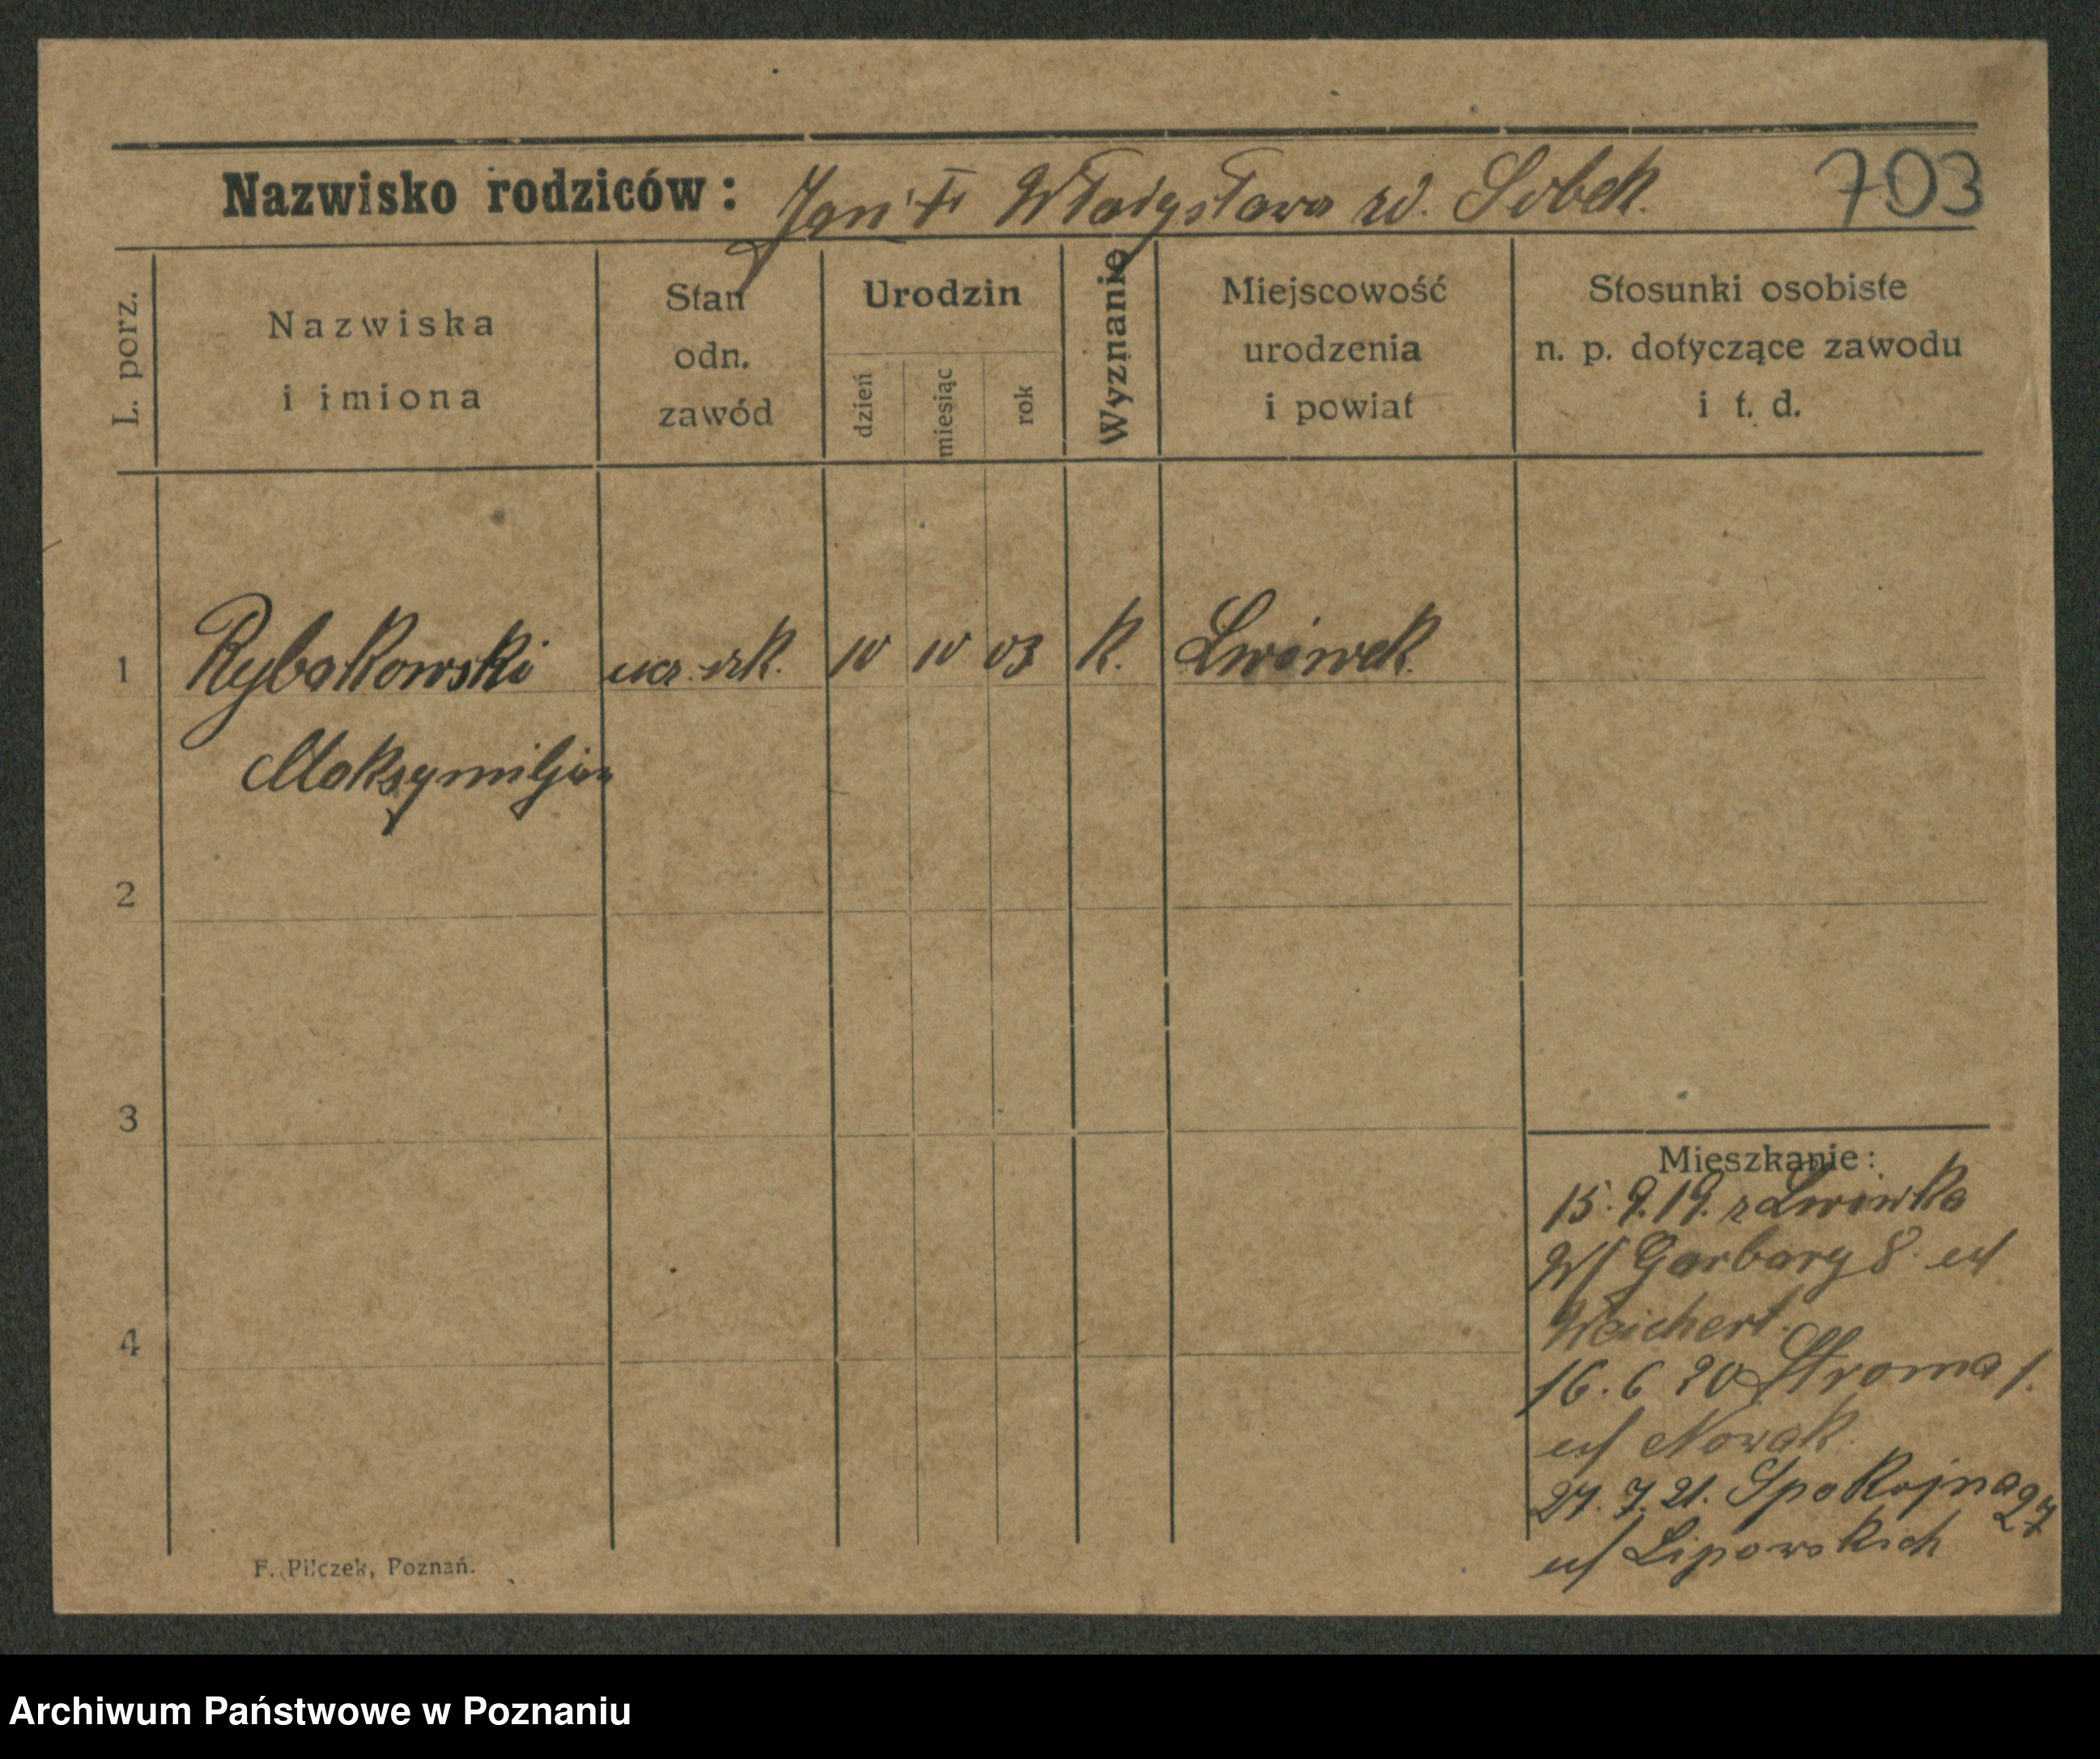 Nazwisko rodziców: Jan i Władysława rd. Sobek. 703
L. porz.
Nazwiska i imiona
Stan odn. zawód
Urodzin
dzień
miesiąc
rok
Wyznanie
Miejscowość urodzenia i powiat
Stosunki osobiste n. p. dotyczące zawodu i t. d.
1 Rybakowski ucz. szk. 10 10 03 K. Lwówek
Maksymiljan
2
3
4
Mieszkanie:
15.9.19. z Lwówka
W/ Garbary 8 u/
Weichert.
16. 6 20 Stroma 1.
u/ Nowak.
27. 7. 21. Spokojna 27
u/ Lipowskich
F. Pilczek, Poznań.
Archiwum Państwowe w Poznaniu